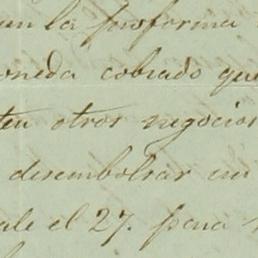 en la proforma
moneda cobrado que
ten otros negocios
desembolsar un
ale el 27. para